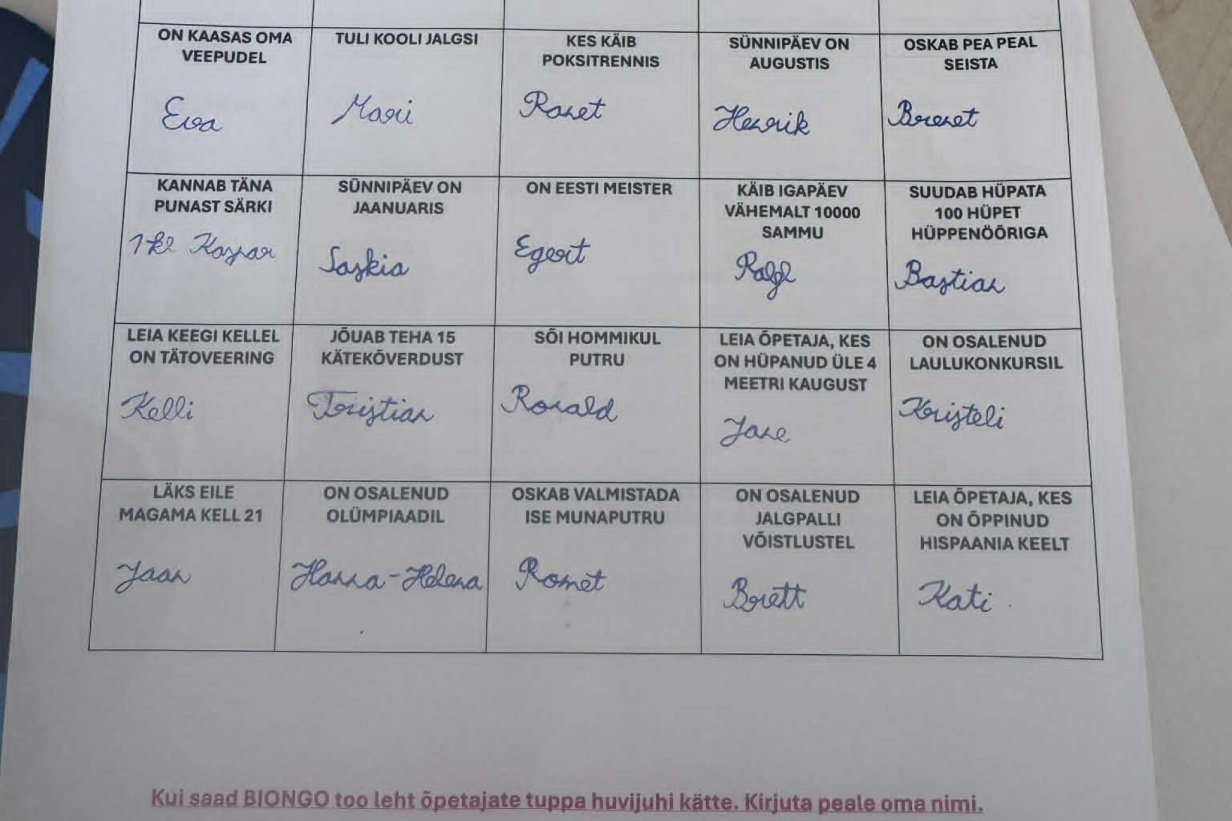 ON KAASAS OMA
VEEPUDEL
Eva
TULI KOOLI JALGSI
Mari
KES KÄIB
POKSITRENNIS
Ranet
SÜNNIPÄEV ON
AUGUSTIS
Henrik
OSKAB PEA PEAL
SEISTA
Brenet
KANNAB TÄNA
PUNAST SÄRKI
1 kl Kaspar
SÜNNIPÄEV ON
JAANUARIS
Saskia
ON EESTI MEISTER
Egert
KÄIB IGAPÄEV
VÄHEMALT 10000
SAMMU
SUUDAB HÜPATA
100 HÜPET
HÜPPENÖÖRIGA
Bastian
LEIA KEEGI KELLEL
ON TÄTOVEERING
Kelli
JÕUAB TEHA 15
KÄTEKÕVERDUST
Tristian
SÕI HOMMIKUL
PUTRU
Ronald
LEIA ÕPETAJA, KES
ON HÜPANUD ÜLE 4
MEETRI KAUGUST
Jane
ON OSALENUD
LAULUKONKURSIL
Kristeli
LÄKS EILE
MAGAMA KELL 21
Jaan
ON OSALENUD
OLÜMPIAADIL
Hanna-Helena
OSKAB VALMISTADA
ISE MUNAPUTRU
Romet
ON OSALENUD
JALGPALLI
VÕISTLUSTEL
Brett
LEIA ÕPETAJA, KES
ON ÕPPINUD
HISPAANIA KEELT
Kati
Kui saad BIONGO too leht õpetajate tuppa huvijuhi kätte. Kirjuta peale oma nimi.